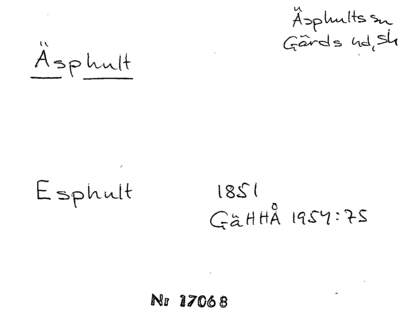 Äsphults sn
Gärds hd, Sk
Äsphult
Esphult 1851
GäHHÅ 1954:75
Nr 17068